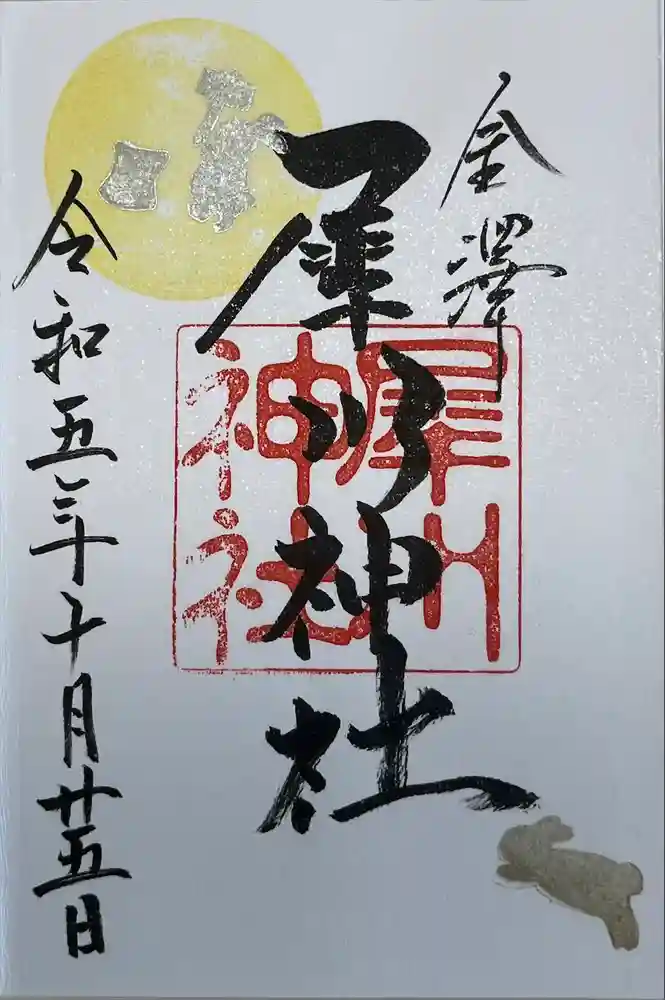 金澤
犀川神社
犀川
神社
令和五年十月廿五日